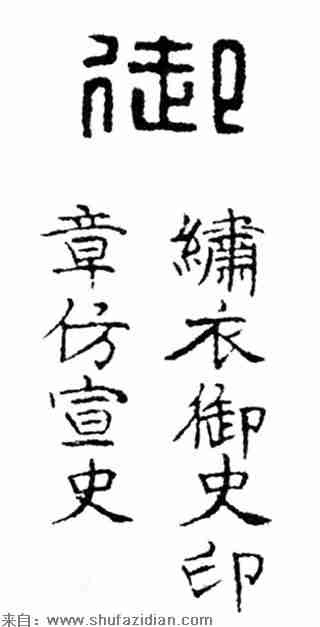 御
繡衣御史印
章仿宣史
来自：www.shufazidian.com